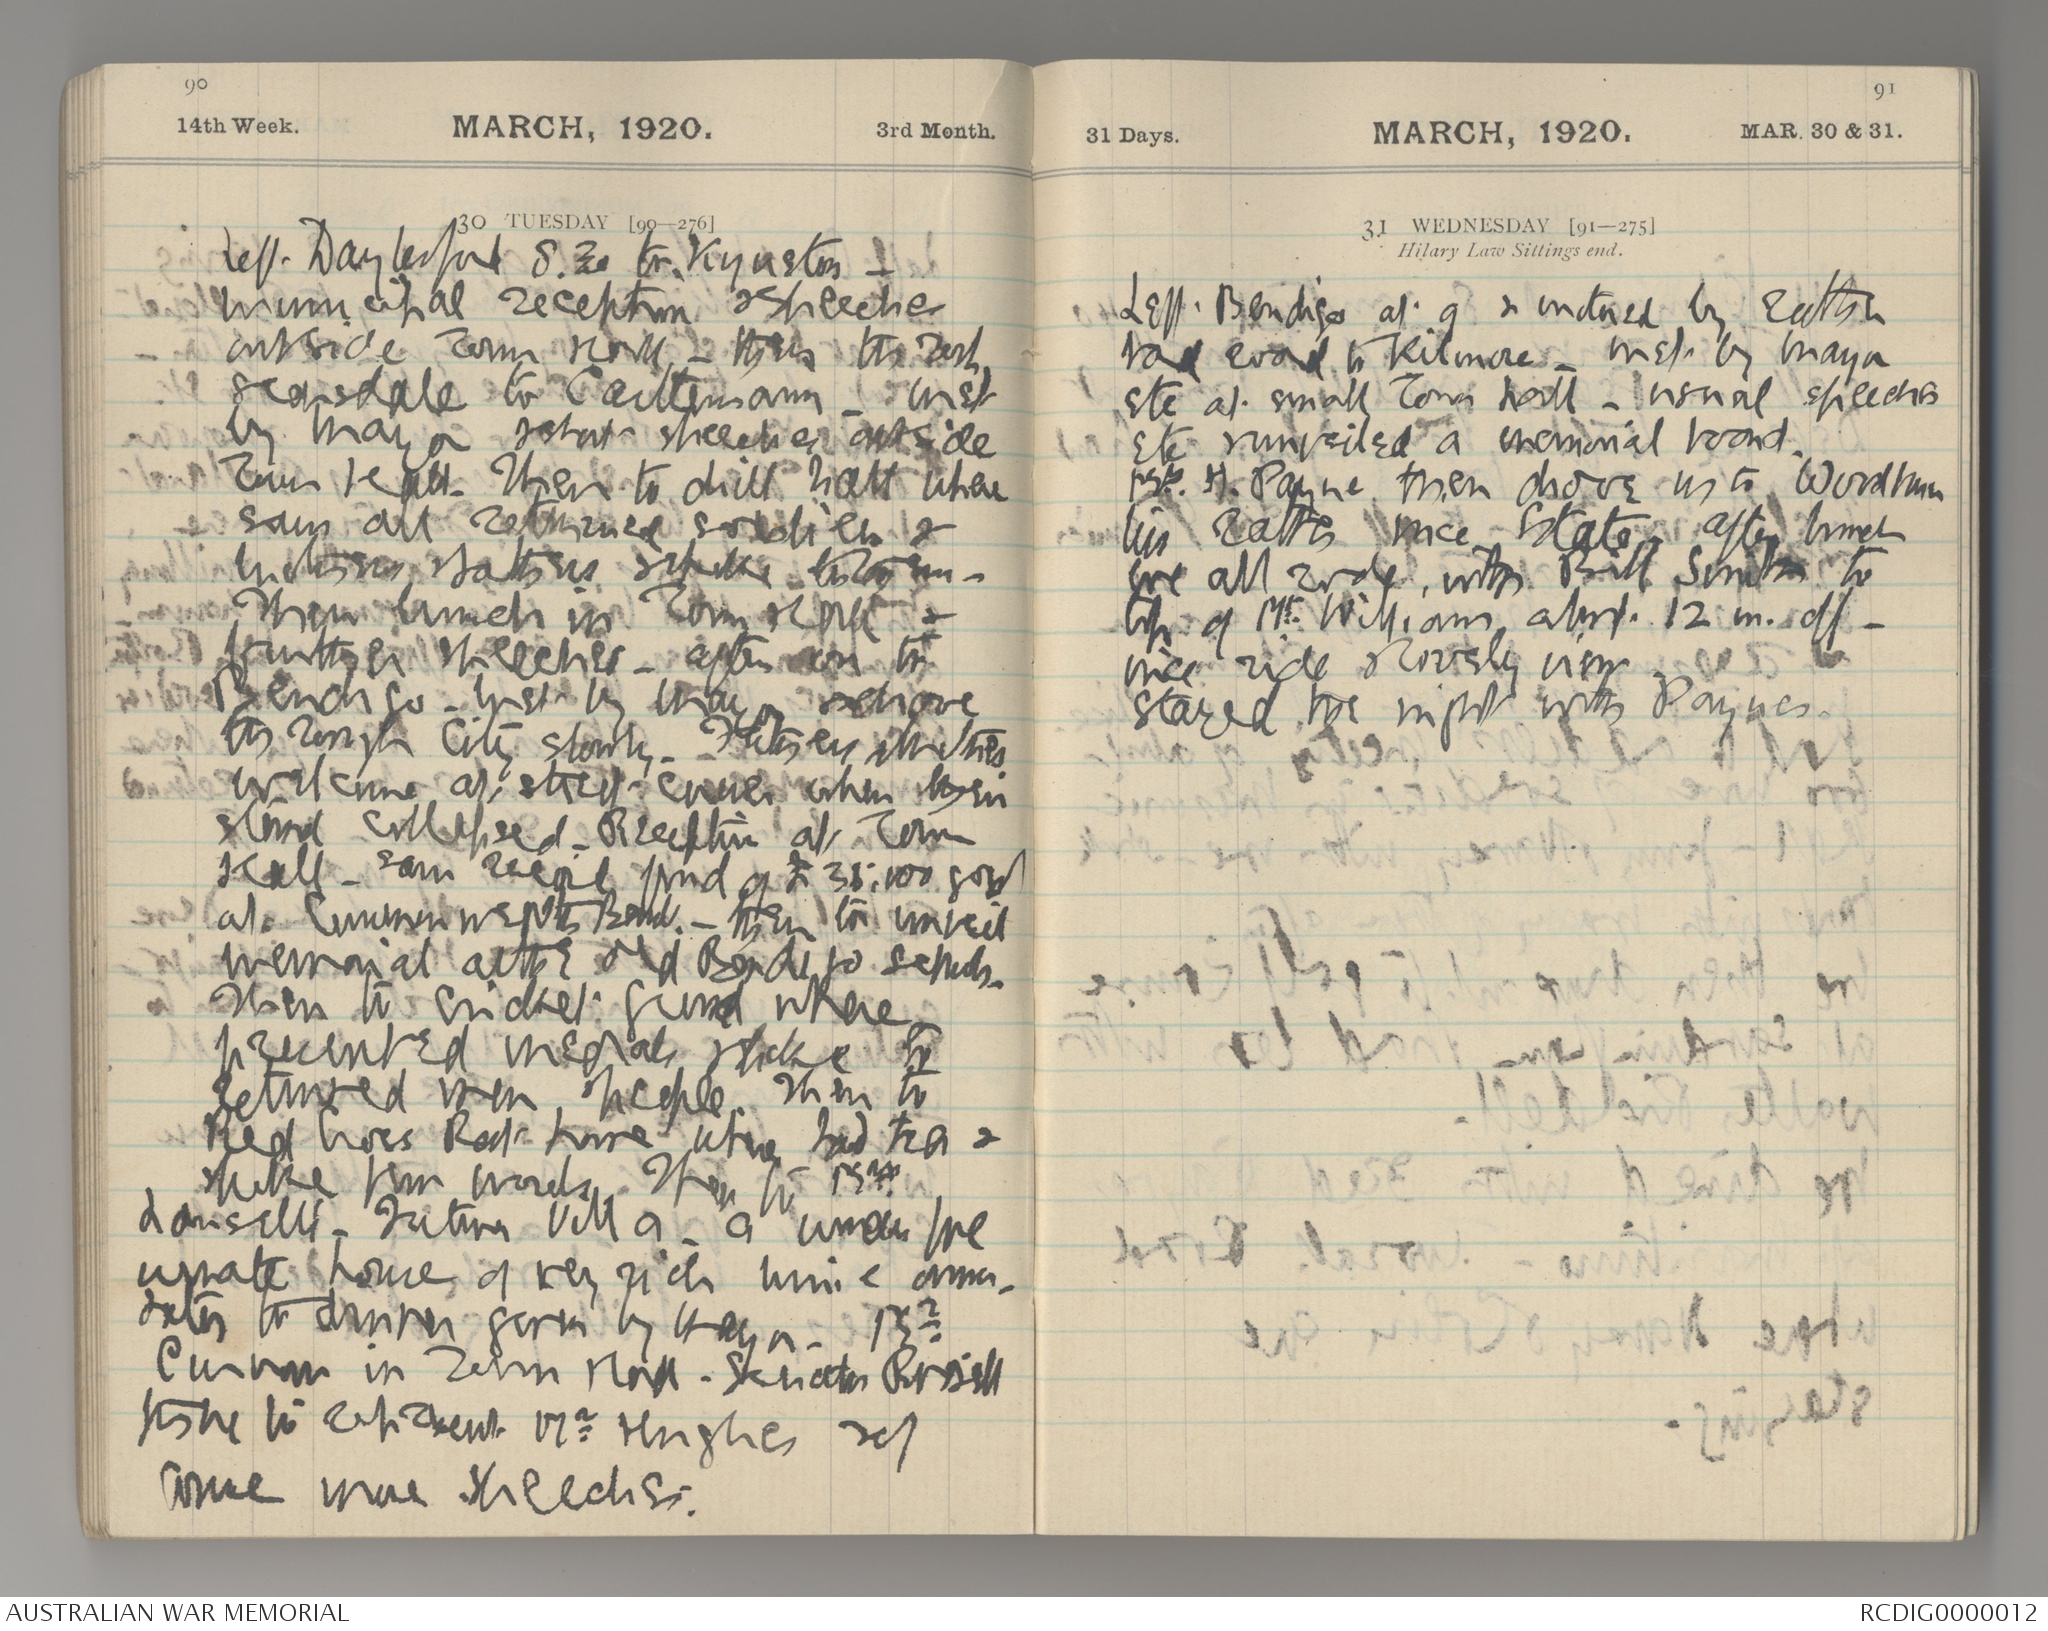 90
14th Week.
MARCH, 1920.
3rd Month.
30 TUESDAY [90—276]
Left Daylesford 8.30 to Kyneton –
municipal reception & speeches
outside Town Hall – then through
to Castlemaine – met
by Mayor & short speeches outside
Town Hall. Then to drill hall where
saw all returned soldiers &
mothers & fathers & spoke to them –
Then lunch in Town Hall &
further speeches – after on to
Bendigo – met by Mayor & drove
through City slowly – Fathers & Mothers
welcome at street corner when their
stand collapsed – Reception at Town
Hall – saw record fund of £ 35,000 gold
at Commonwealth Bank. – then to unveil
memorial at the old Bendigo school.
Then to cricket ground where
presented medals & spoke to
returned men & people. Then to
Red Cross Rest home where had tea &
spoke few words. Then to Mrs
Lansell's – Fortuna Villa – a
ornate house of very rich mine owner –
Later to dinner given by Mayor – Mr
Curnow in Town Hall – Senator Russell
there to represent Mr Hughes & of
course more speeches.
91
31 Days.
MARCH, 1920.
MAR. 30 & 31.
31 WEDNESDAY [91—275]
Hilary Law Sittings end.
Left Bendigo at 9 & motored by rather
bad road to Kilmore – met by Mayor
etc at small Town Hall – usual speeches
etc & unveiled a memorial board.
Mr. H. Payne then drove us to Woodhouse
his rather nice State – after lunch
we all rode, with Bill Smith to
top of Mt. William, about 12 m. off –
nice ride & lovely view
stayed the night with Paynes.
AUSTRALIAN WAR MEMORIAL
RCDIG0000012